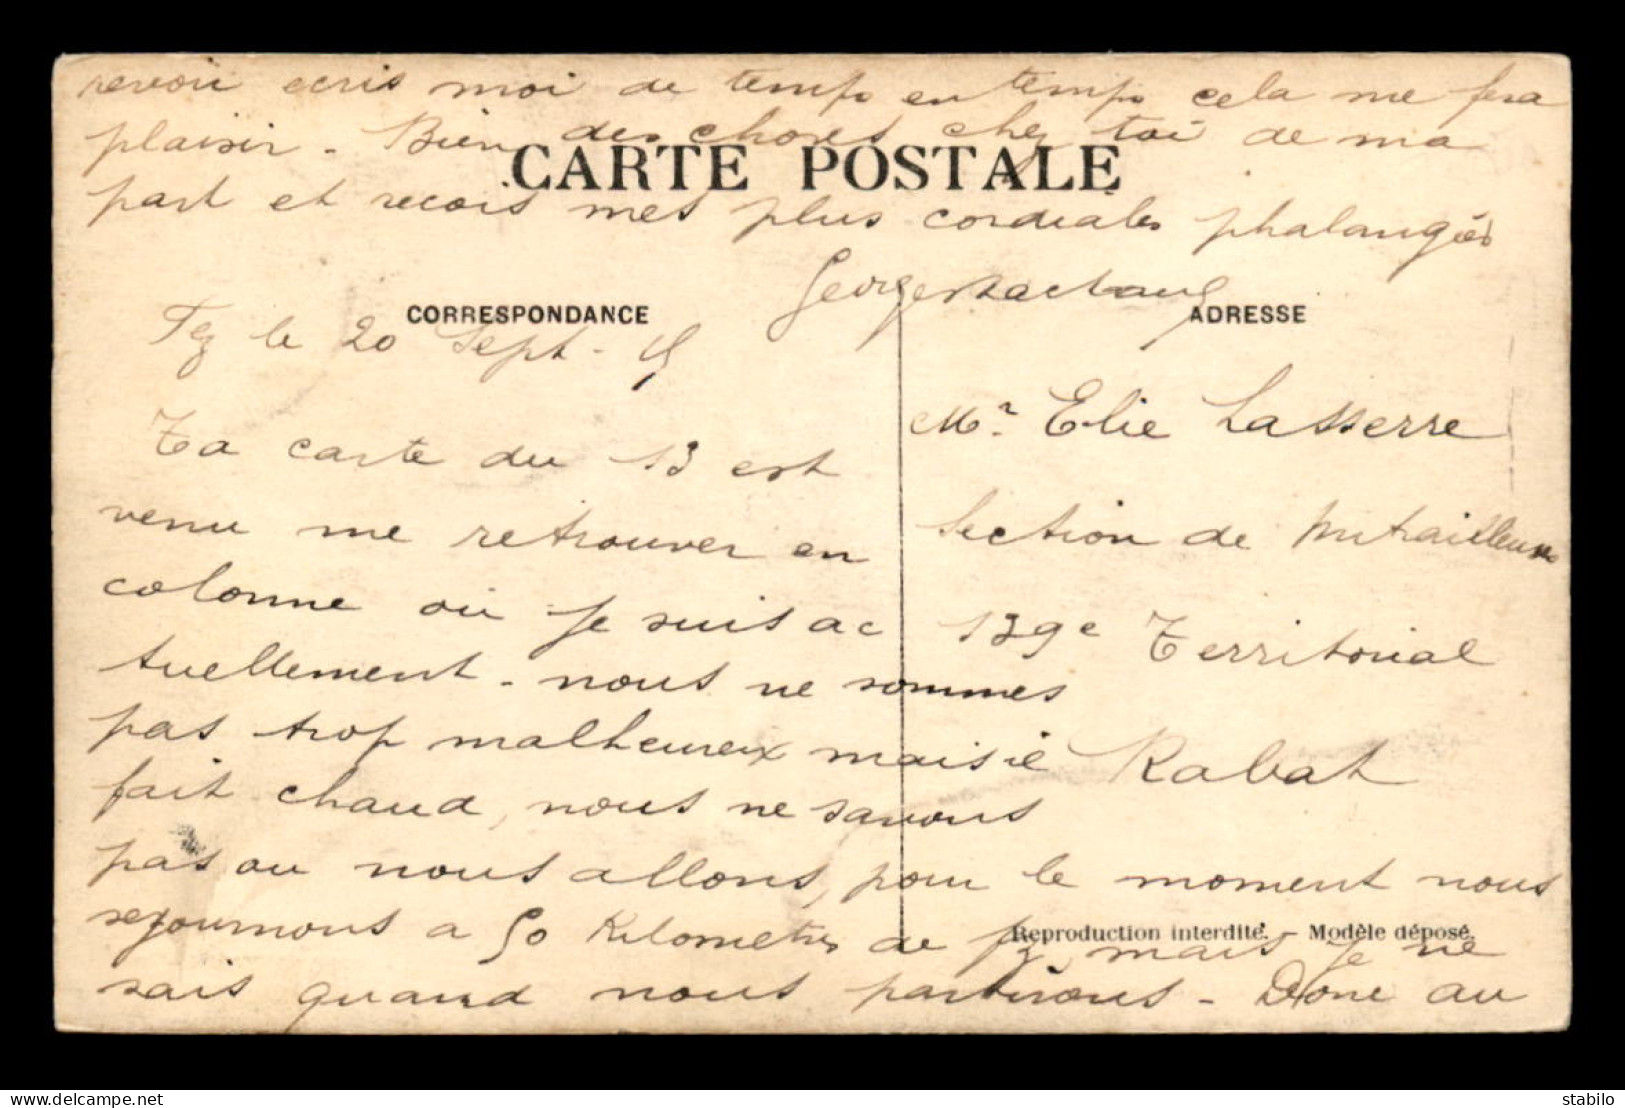 revoir ecris moi de temps en temps cela me fera
plaisir - Bien des choses chez toi de ma
CARTE POSTALE
part et recois mes plus cordiales phalanges
Georges
CORRESPONDANCE
ADRESSE
Fez le 20 Sept - 15
Ta carte du 13 est
venu me retrouver en
colonne ou je suis ac
tuellement - nous ne sommes
pas trop malheureux mais il
fait chaud, nous ne savons
pas ou nous allons, pour le moment nous
sejournons a 50 Kilometres de Fez, mais je ne
sais quand nous partirons - Donc au
Mr. Elie Lasserre
Section de Mitrailleuses
139e Territorial
Rabat
Reproduction interdite. - Modèle déposé.
delcampe.net
stabilo